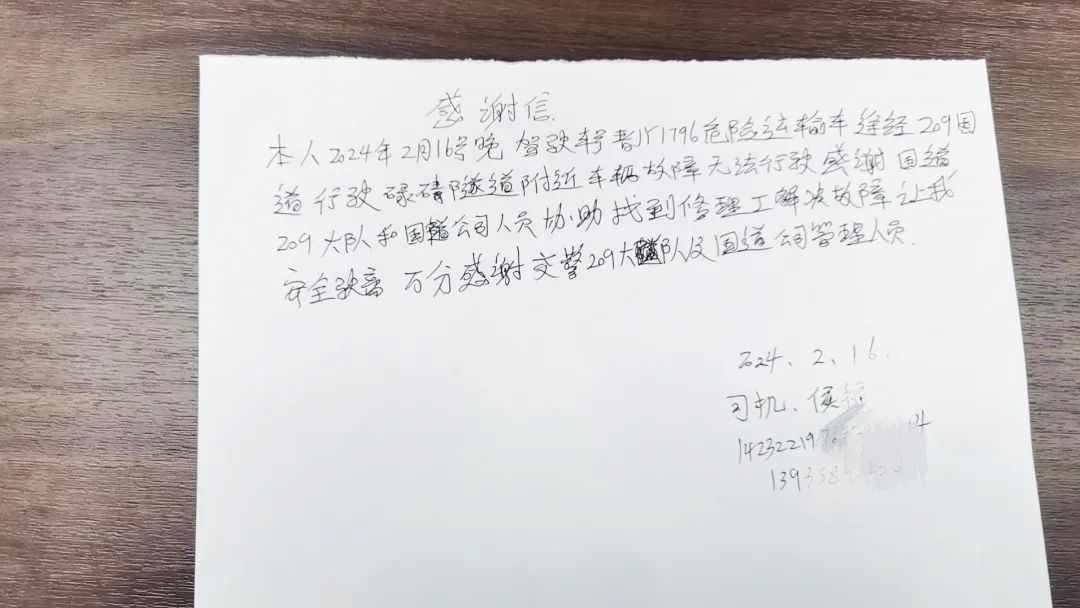 感谢信.
本人2024年2月16号晚 驾驶车号晋JY1796危险运输车途经209国
道行驶碌碡隧道附近车辆故障无法行驶感谢国道
209大队和国道公司人员协助找到修理工解决故障让我
安全驶离 万分感谢交警209大队及国道公司管理人员.
2024、2、16.
司机、侯